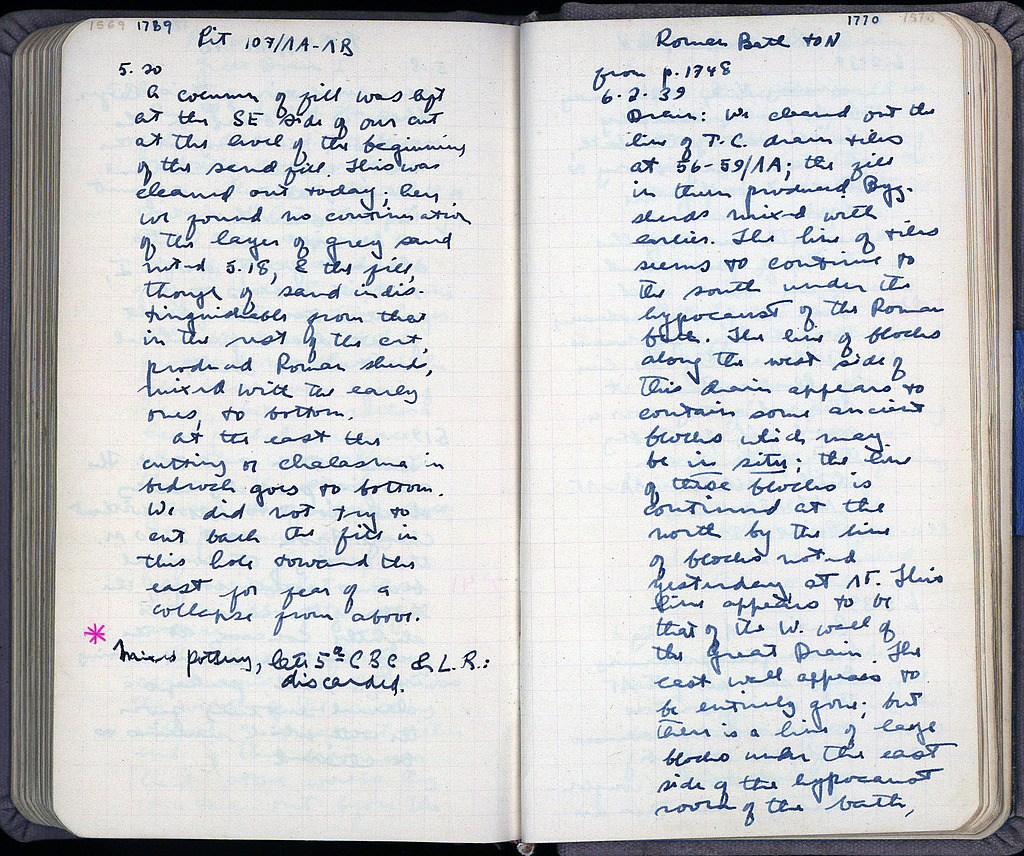 1569 1789
Pit 107/ΛA-ΛB
5.20
A column of fill was left
at the SE side of our cut
at the level of the beginning
of the sand fill. This was
cleaned out today; here
we found no continuation
of the layer of grey sand
noted 5.18, & the fill,
though of sand indis-
tinguishable from that
in the rest of the cut,
produced Roman sherds,
mixed with the early
ones, to bottom.
At the east the
cutting or chalasma in
bedrock goes to bottom.
We did not try to
cut back the fill in
this hole toward the
east for fear of a
collapse from above.
*
Mixed pottery, late 5th C BC & L.R.:
discarded.
1770 1570
Roman Bath to N
from p. 1748
6.2.39
Drain: We cleared out the
line of T.C. drain tiles
at 56-59/ΛA; the fill
in them produced Byz.
sherds mixed with
earlier. The line of tiles
seems to continue to
the south under the
hypocaust of the Roman
bath. The line of blocks
along the west side of
this drain appears to
contain some ancient
blocks which may
be in situ; the line
of these blocks is
continued at the
north by the line
of blocks noted
yesterday at ΛΓ. This
line appears to be
that of the W. wall of
the Great Drain. The
east wall appears to
be entirely gone; but
there is a line of large
blocks under the east
side of the hypocaust
room of the bath,